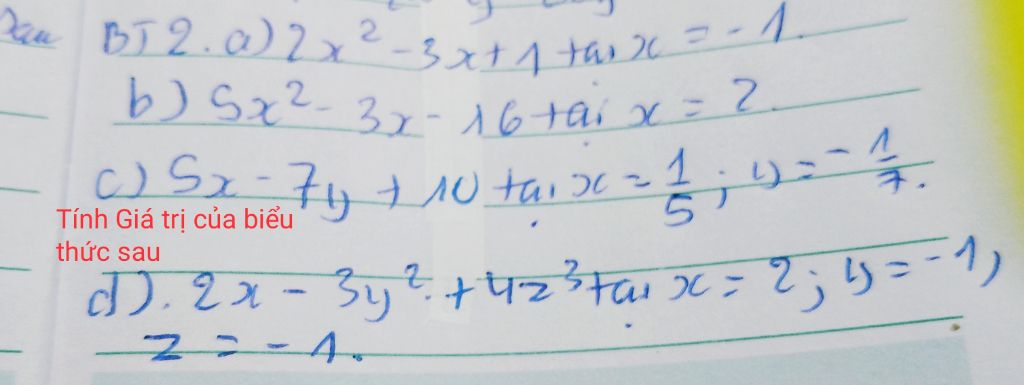 Sau BT2. a) 2x² - 3x + 1 tại x = -1.
b) 5x² - 3x - 16 tại x = 2.
c) 5x - 7y + 10 tại x = 1/5 ; y = -1/7.
Tính Giá trị của biểu
thức sau
d). 2x - 3y² + 4z³ tại x = 2 ; y = -1,
z = -1.